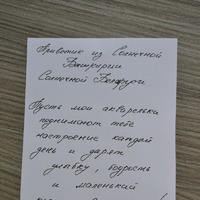 Приветие из Солнечной
Башкирии
Солнечной
Пусть мои акварельки
поднимают тебе
настроение каждый
день и дарят
улыбку, бодрость
и маленький